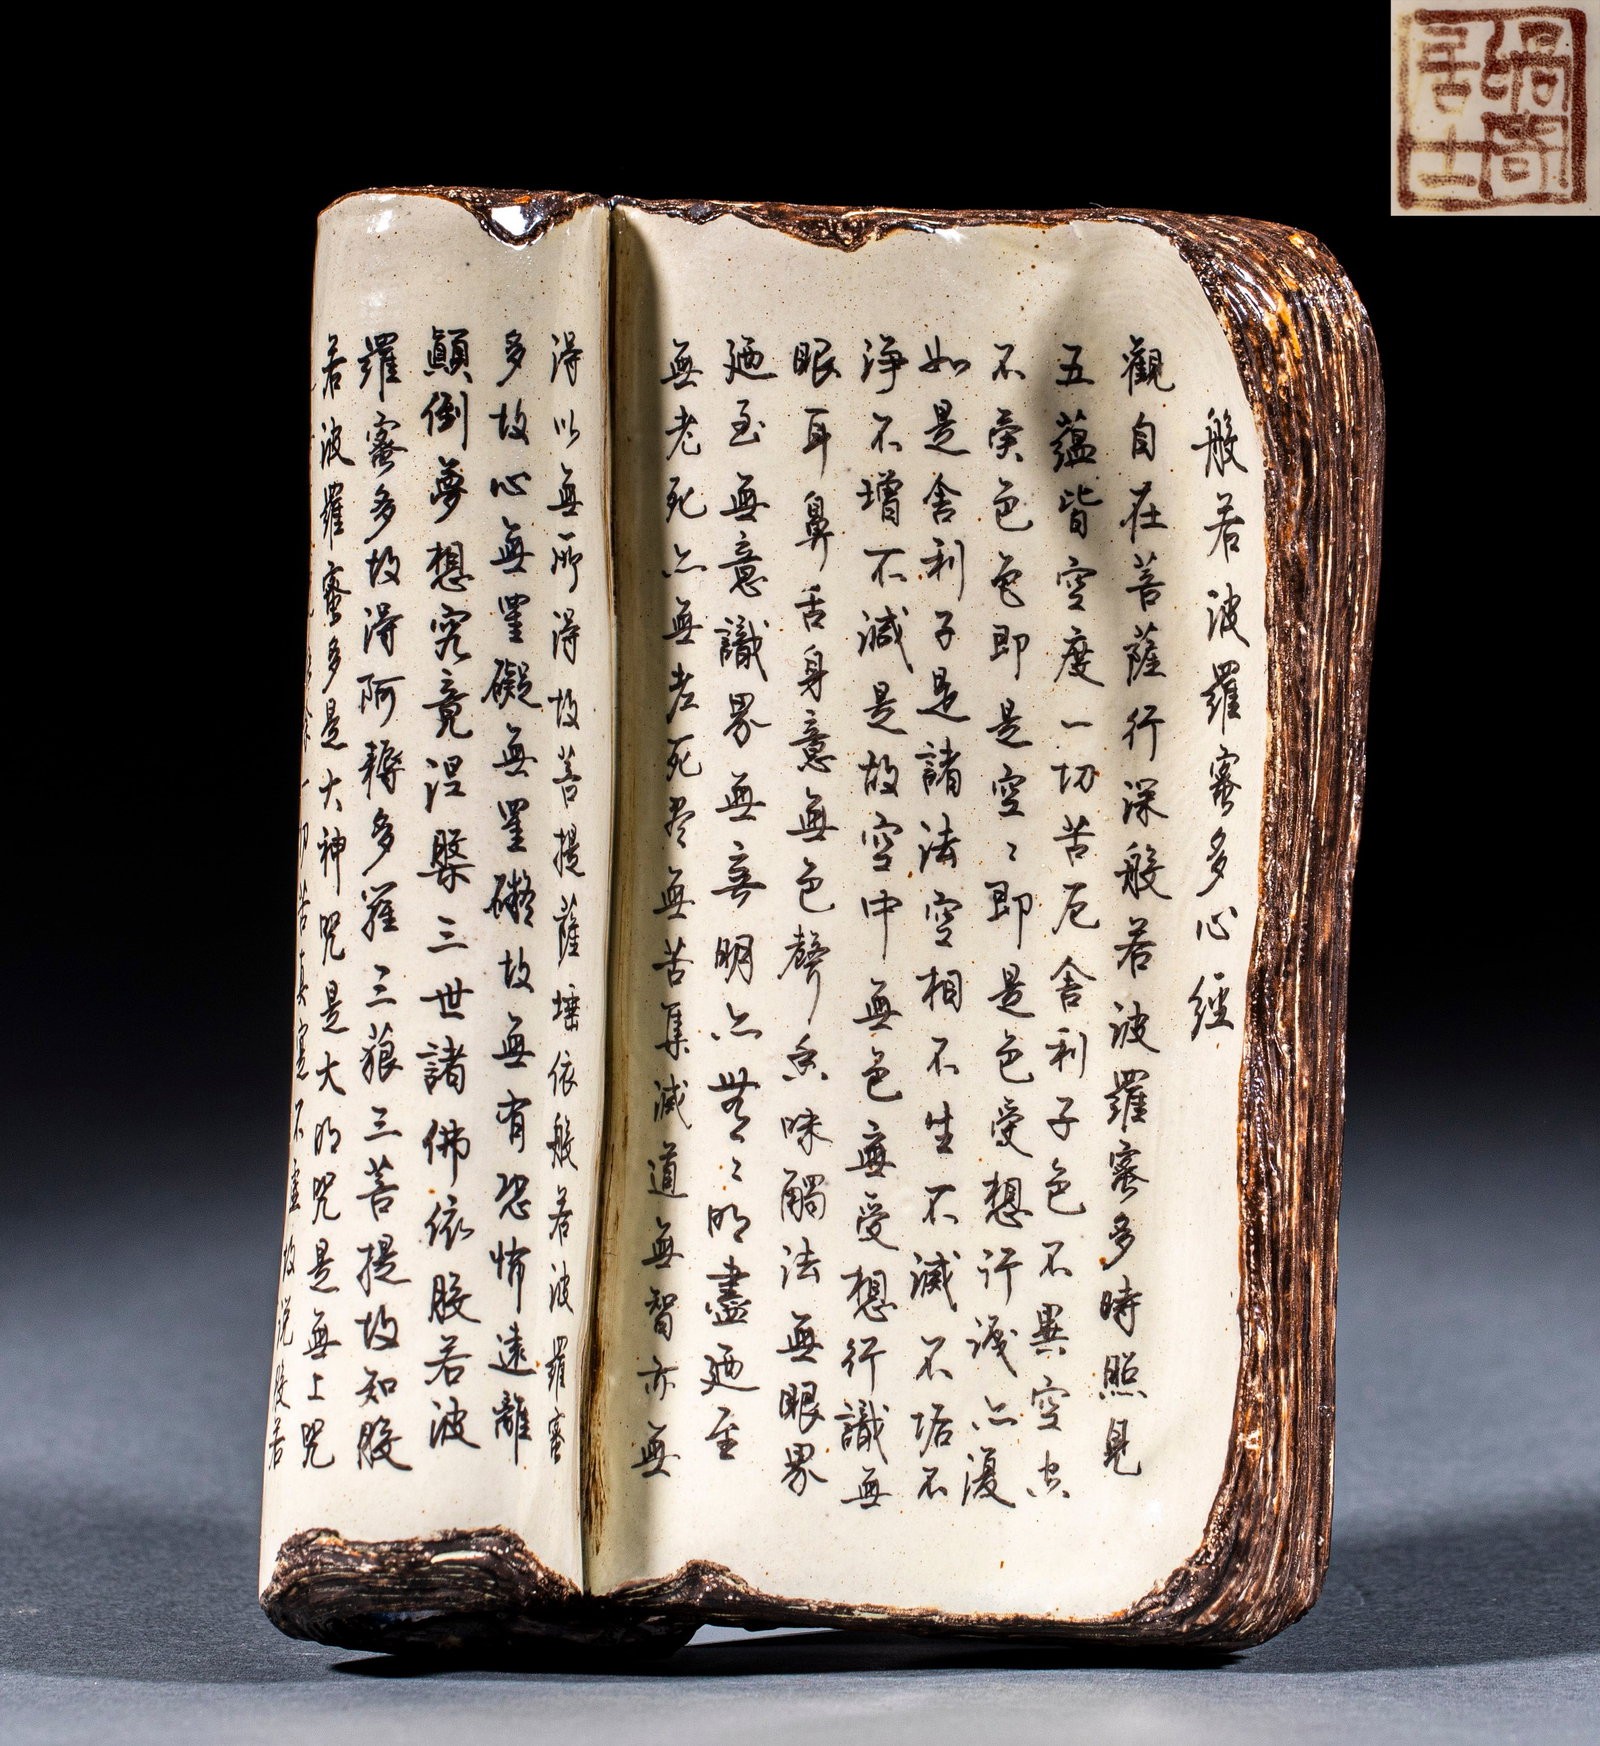 般若波羅蜜多心經
觀自在菩薩行深般若波羅蜜多時照見
五蘊皆空度一切苦厄舍利子色不異空空
不異色色即是空ミ即是色受想行識亦復
如是舍利子是諸法空相不生不滅不垢不
淨不增不減是故空中無色無受想行識無
眼耳鼻舌身意無色聲香味觸法無眼界
廼至無意識界無無明亦無ミ明盡廼至
無老死亦無老死盡無苦集滅道無智亦無
得以無所得故菩提薩埵依般若波羅蜜
多故心無罣礙無罣礙故無有恐怖遠離
顛倒夢想究竟涅槃三世諸佛依般若波
羅蜜多故得阿耨多羅三藐三菩提故知般
若波羅蜜多是大神咒是大明咒是無上咒
除一切苦真實不虛故說般若
居士